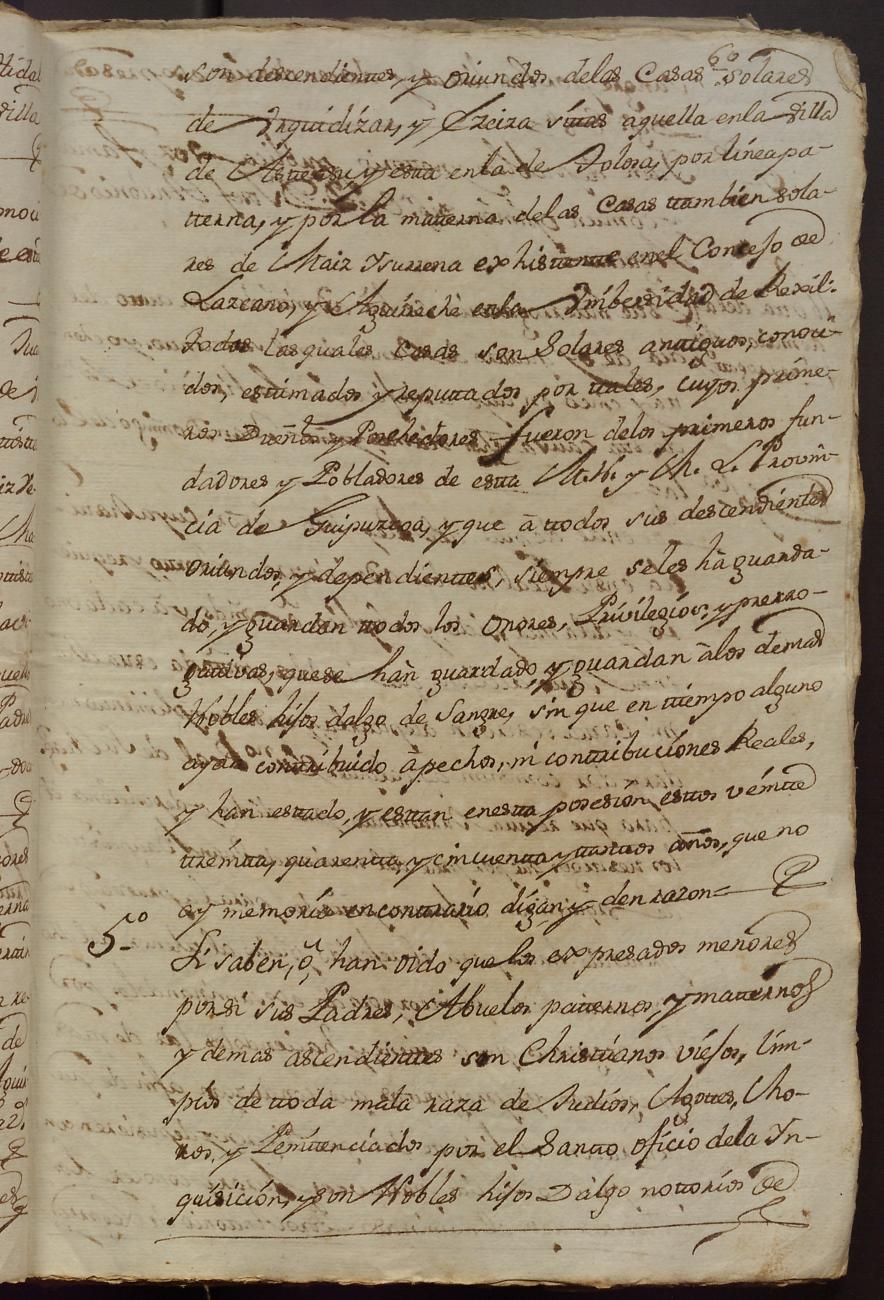 60
son descendientes, y oriundos delas Casas solares
de Yrguidizar, y Ezeiza sittas aquella enla Villa
de Asteasu y estta enla de Tolosa, por linea pa-
tterna, y por la matterna delas Casas ttambien sola-
res de Maiz Ysurrena exhisttentte enel Concejo de
Lazcano, y Aguirreche enla Vnibersidad de Rexil:
todas las quales Casas son Solares anttiguos, conoci-
dos, esttimados y reputtados por ttales, cuyos prime-
ros Dueños y Pose hedores fueron delos primeros fun-
dadores y Pobladores de estta M. N. y M. L. Provin-
cia de Guipuzcoa, y que à ttodos sus descendientes
oriundos, y dependienttes, siempre seles hà guarda-
do, y guardan ttodos los onores, Privilegios, y prerro-
gativas, quese hàn guardado y guardan àlos demas
Nobles hijos dalgo de Sangre, sin que en ttiempo alguno
ayan conttribuido à pechos, ni conttribuciones Reales,
y han esttado, y esttan enestta posesion esttos veintte
ttreintta, quarentta y cincuentta y ttanttos años, que no
ay memoria encontrario digan y den razon=
5.o Si saben, ò han oido que los expresados menores
porsi sus Padres, Abuelos patternos, y matternos
y demas ascendienttes son Christtianos viejos, lim-
pios de ttoda mala raza de Judios, Agottes, Mo-
ros, y Penittenciados por el Santto oficio dela Yn-
quisicion, y son Nobles hijos Dalgo nottorios de